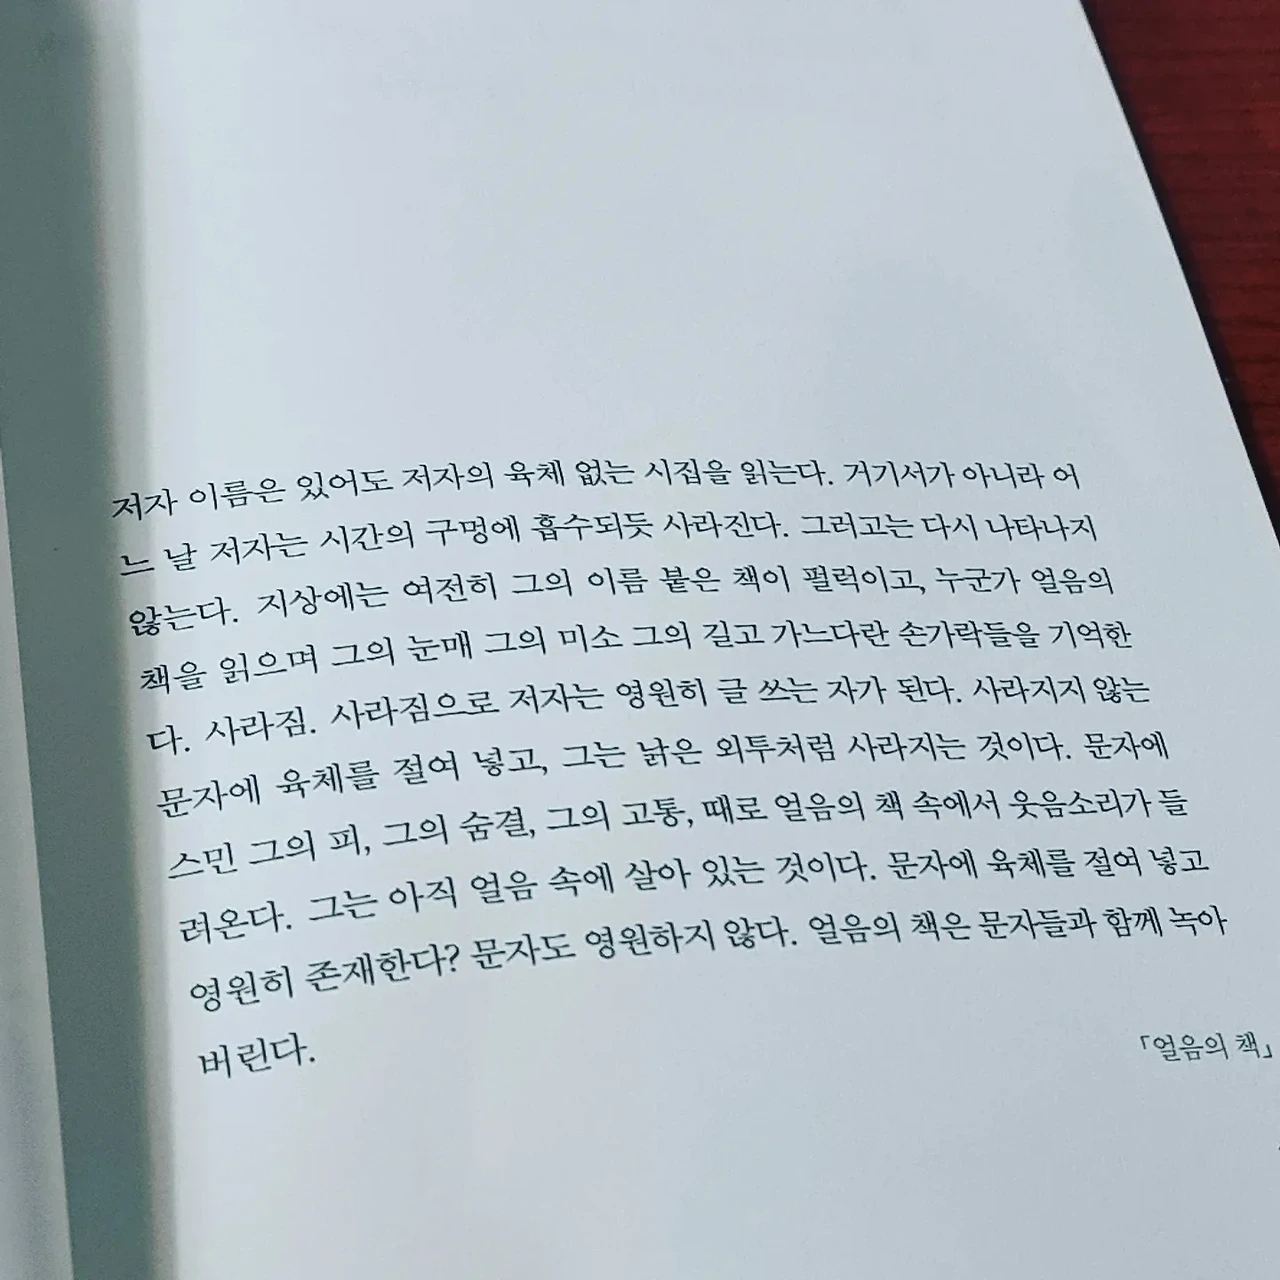 저자 이름은 있어도 저자의 육체 없는 시집을 읽는다. 거기서가 아니라 어
느 날 저자는 시간의 구멍에 흡수되듯 사라진다. 그러고는 다시 나타나지
않는다. 지상에는 여전히 그의 이름 붙은 책이 펄럭이고, 누군가 얼음의
책을 읽으며 그의 눈매 그의 미소 그의 길고 가느다란 손가락들을 기억한
다. 사라짐. 사라짐으로 저자는 영원히 글 쓰는 자가 된다. 사라지지 않는
문자에 육체를 절여 넣고, 그는 낡은 외투처럼 사라지는 것이다. 문자에
스민 그의 피, 그의 숨결, 그의 고통, 때로 얼음의 책 속에서 웃음소리가 들
려온다. 그는 아직 얼음 속에 살아 있는 것이다. 문자에 육체를 절여 넣고
영원히 존재한다? 문자도 영원하지 않다. 얼음의 책은 문자들과 함께 녹아
버린다.
「얼음의 책」